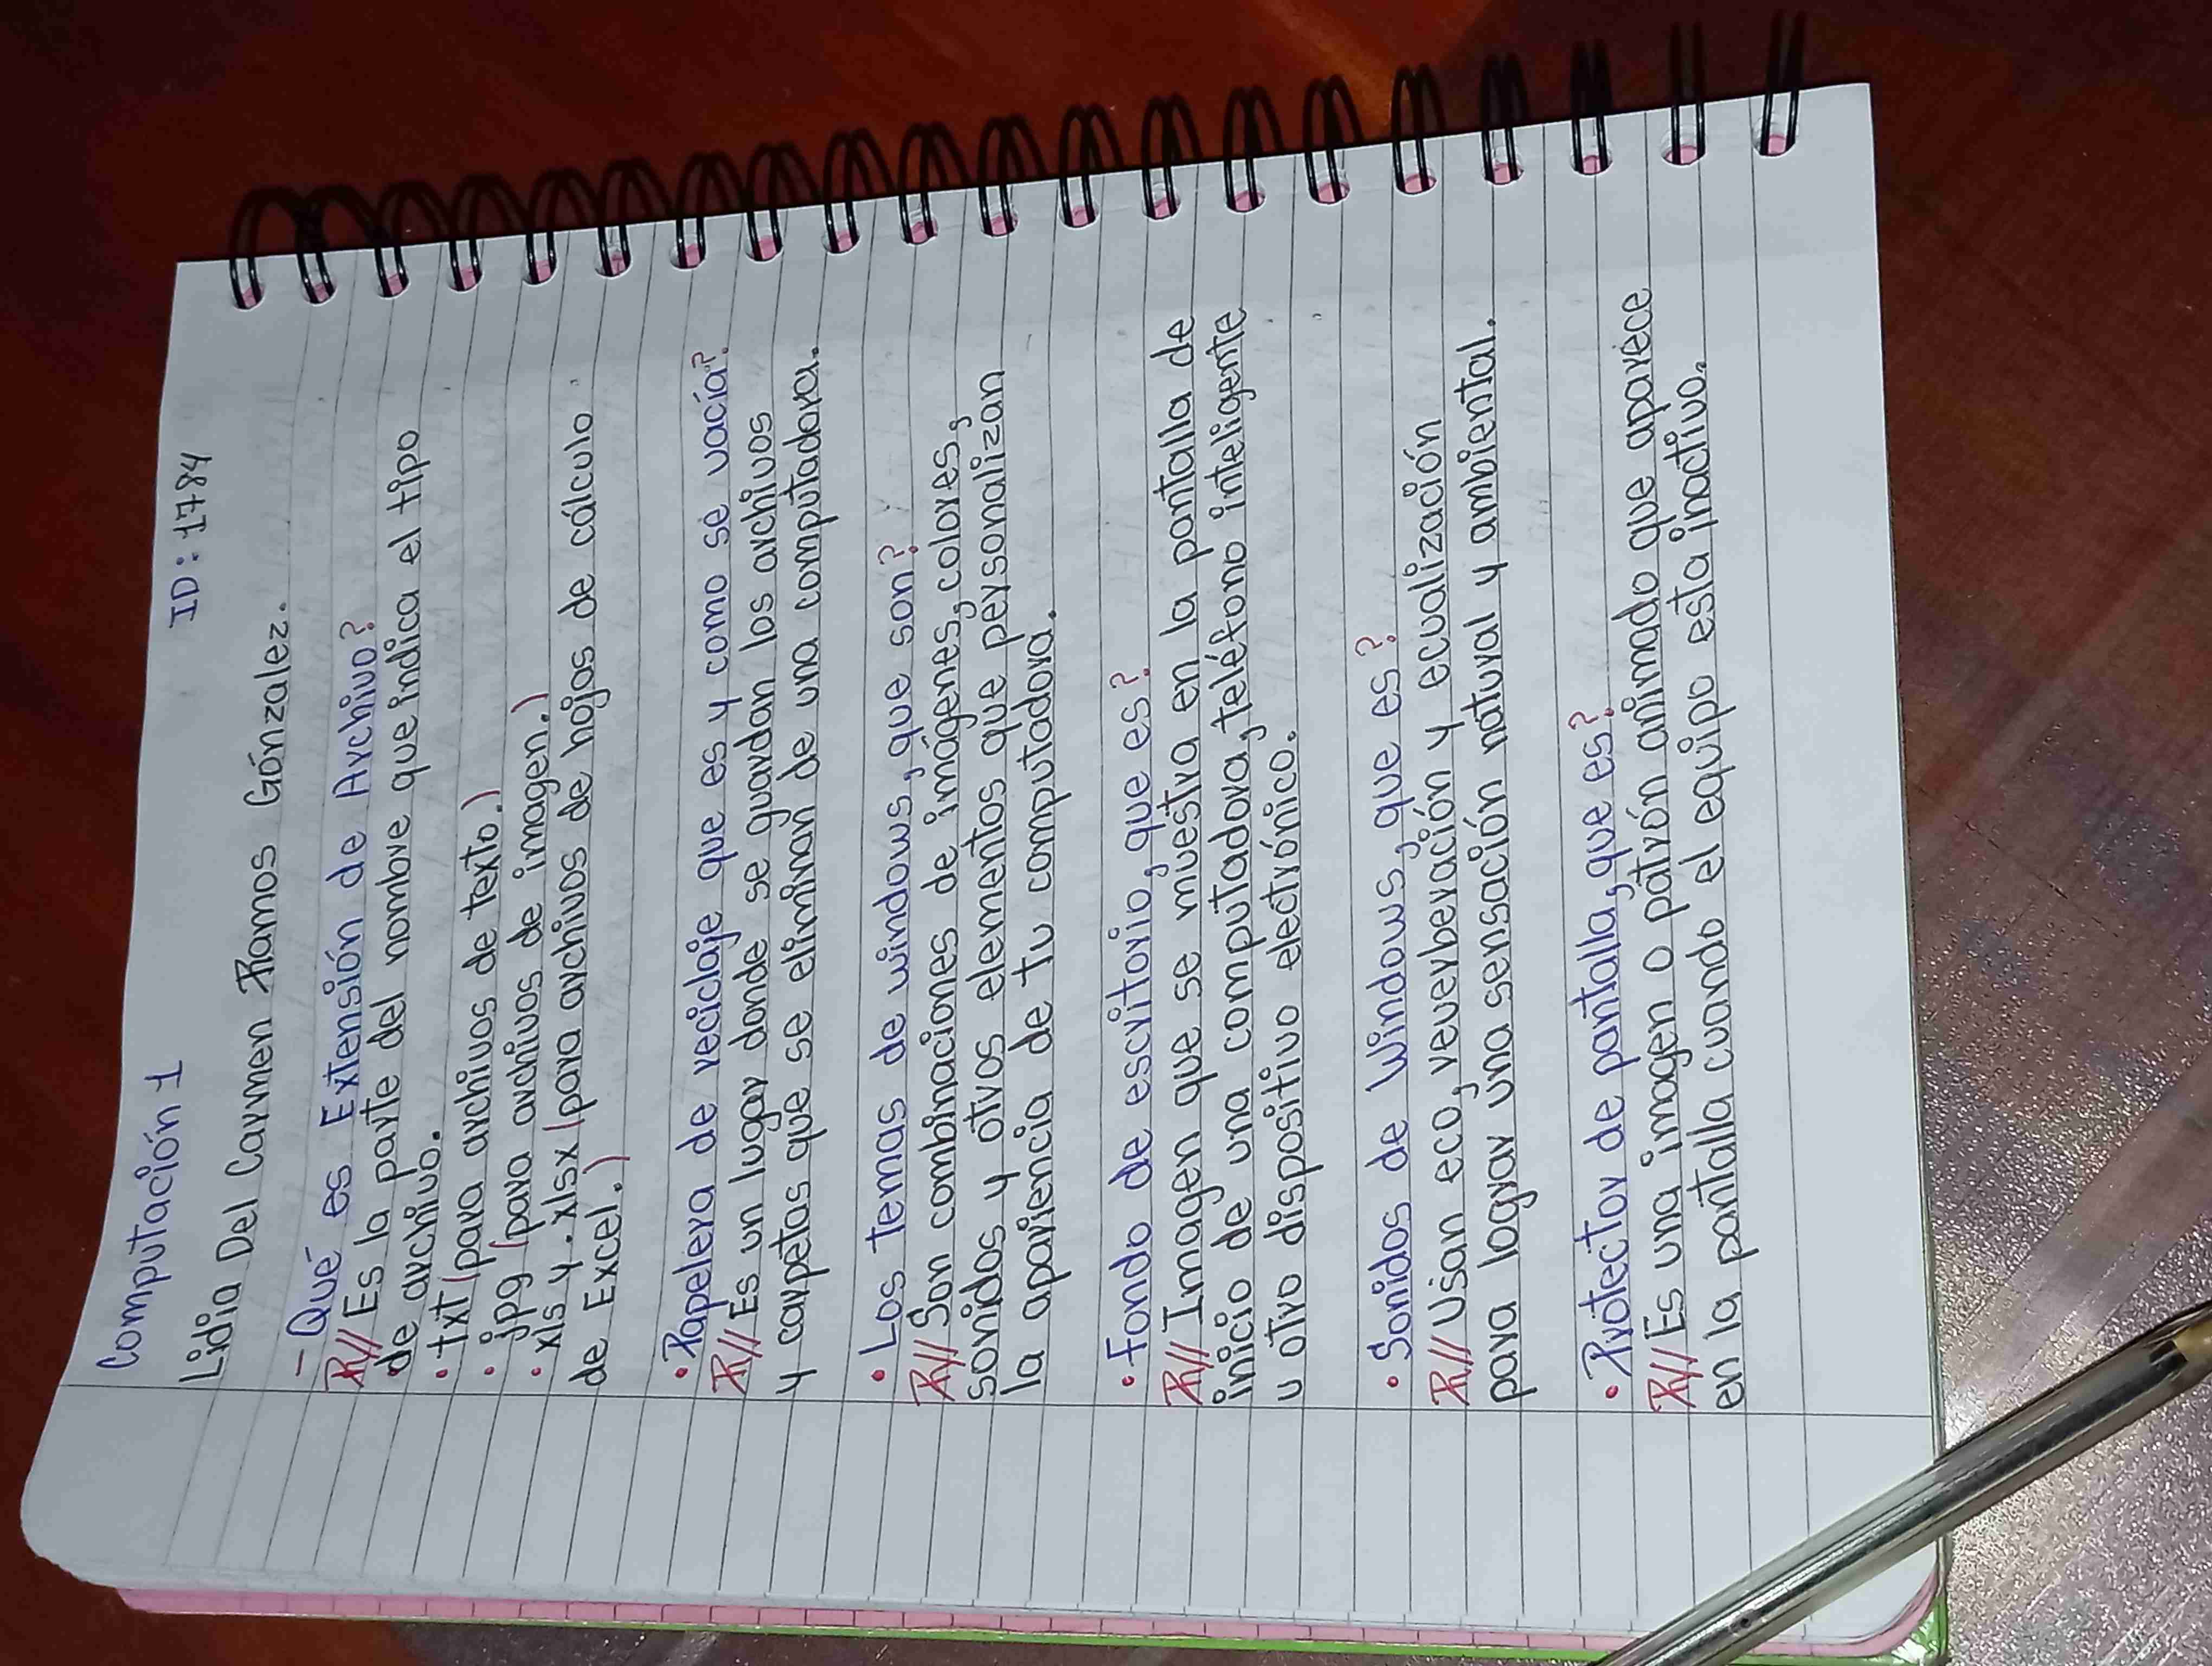 Computación 1 ID: 1784
Lidia Del Carmen Ramos Gónzalez.
- Qué es Extensión de Archivo?
R// Es la parte del nombre que indica el tipo
de archivo.
• txt (para archivos de texto.)
• jpg (para archivos de imagen.)
• xls y .xlsx (para archivos de hojas de cálculo
de Excel.)
• Papelera de reciclaje que es y como se vacía?
R// Es un lugar donde se guardan los archivos
y carpetas que se eliminan de una computadora.
• Los temas de windows, que son?
R// Son combinaciones de imágenes, colores,
sonidos y otros elementos que personalizan
la apariencia de tu computadora.
• Fondo de escritorio, que es?
R// Imagen que se muestra en la pantalla de
inicio de una computadora, teléfono inteligente
u otro dispositivo electrónico.
• Sonidos de Windows, que es?
R// Usan eco, reverberación y ecualización
para lograr una sensación natural y ambiental.
• Protector de pantalla, que es?
R// Es una imagen o patrón animado que aparece
en la pantalla cuando el equipo esta inactivo.